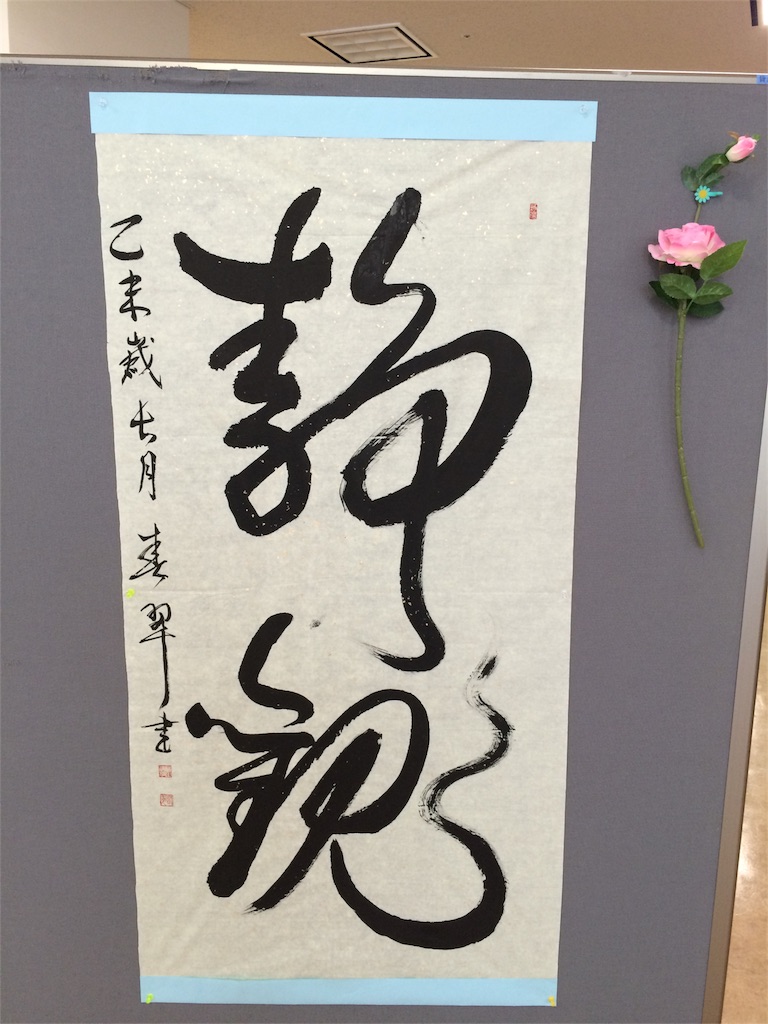 静観
乙未歳長月春翠書